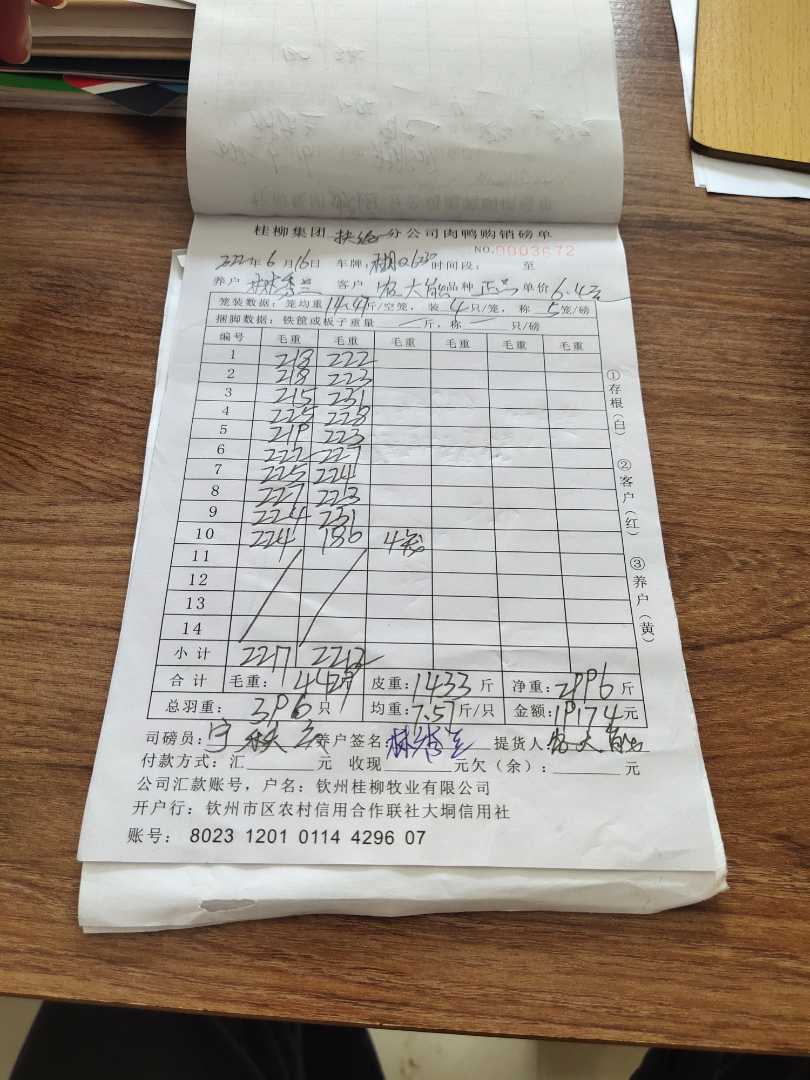 桂柳集团 扶绥 分公司肉鸭购销磅单
NO. 0003672
2022年6月16日 车牌: 时间段: 至
养户 林秀兰 客户 品种 正品 单价 6.4元
笼装数据: 笼均重 14.47斤/空笼, 装 4只/笼, 称 5笼/磅
捆脚数据: 铁筐或板子重量 — 斤, 称 — 只/磅
编号 毛重 毛重 毛重 毛重 毛重 毛重
1 218 222
2 218 223
3 215 231
4 225 228
5 219 223
6 222 227
7 225 224
8 227 223
9 224 231
10 224 180 4笼
11
12
13
14
小计 2217 2212
合计 毛重: 4429 皮重: 1433 斤 净重: 2996 斤
总羽重: 396 只 均重: 7.57 斤/只 金额: 19174 元
司磅员: 养户签名: 林秀兰 提货人:
付款方式: 汇 元 收现 元欠(余): 元
公司汇款账号, 户名: 钦州桂柳牧业有限公司
开户行: 钦州市区农村信用合作联社大垌信用社
账号: 8023 1201 0114 4296 07
①存根(白)
②客户(红)
③养户(黄)